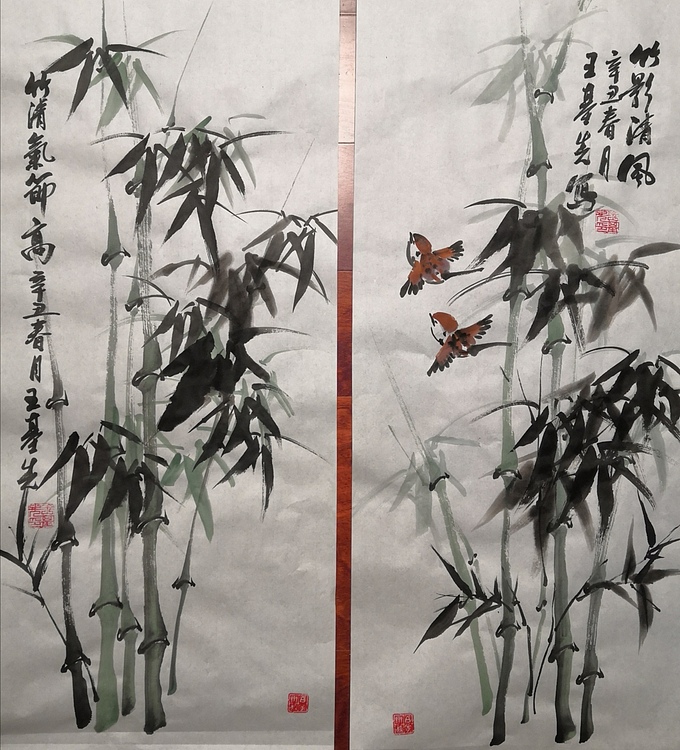 竹清氣節高辛丑春月王基先
竹影清風
辛丑春月
王基先写